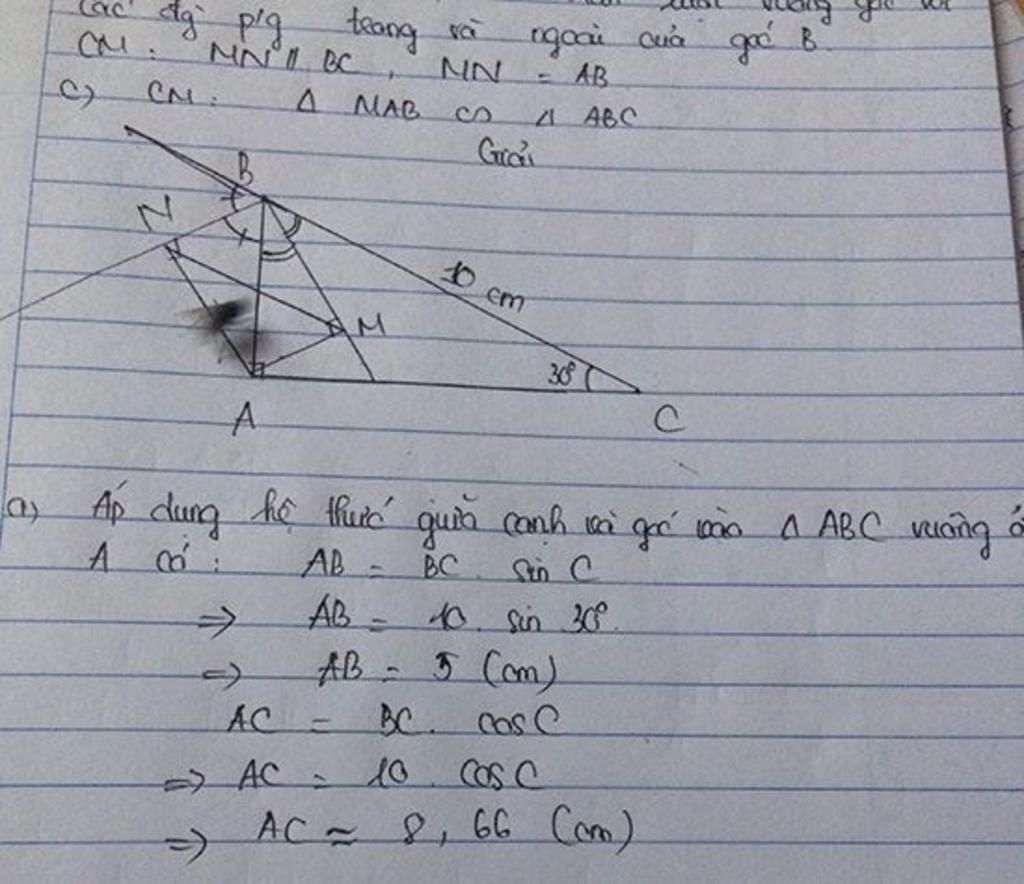 các đg p/g trong và ngoài của góc B.
CM: MN // BC, MN = AB
c) CM: Δ MAB ∽ Δ ABC
Giải
B
N
10 cm
M
30°
A
C
a) Áp dụng hệ thức giữa cạnh và góc vào Δ ABC vuông ở
A có: AB = BC. sin C
=> AB = 10. sin 30°.
=> AB = 5 (cm)
AC = BC. cos C
=> AC = 10. cos C
=> AC ≈ 8,66 (cm)